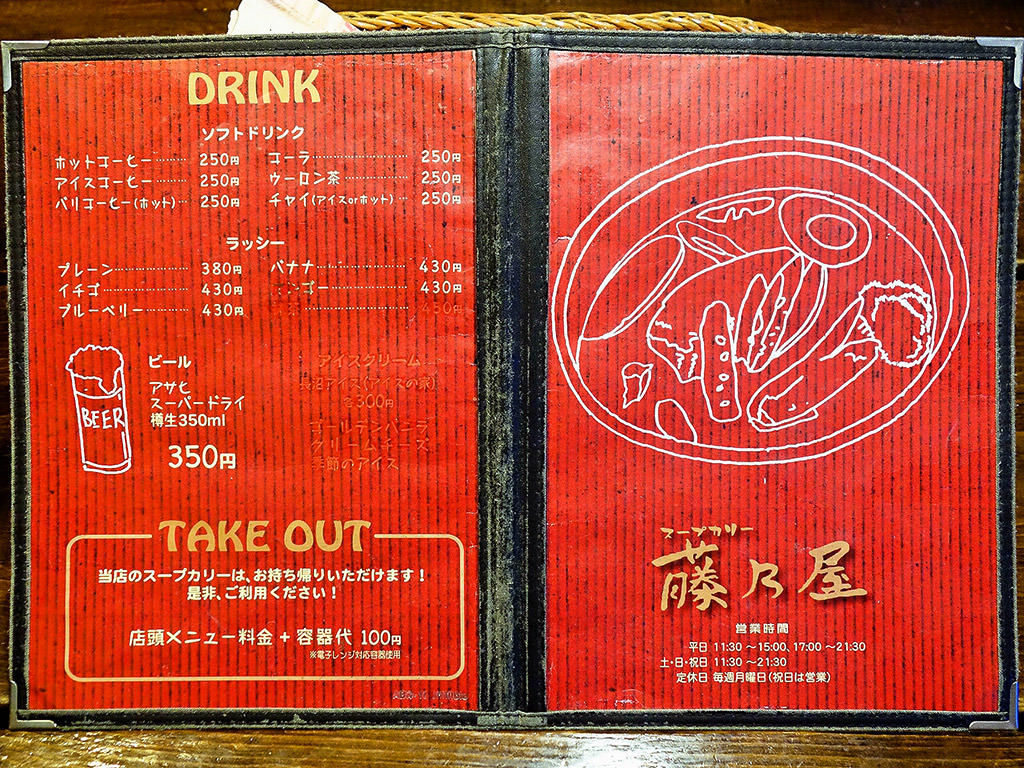 DRINK
ソフトドリンク
ホットコーヒー………250円
アイスコーヒー………250円
バリコーヒー(ホット)…250円
コーラ……………………250円
ウーロン茶………………250円
チャイ(アイスorホット)…250円
ラッシー
プレーン………………380円
イチゴ…………………430円
ブルーベリー…………430円
バナナ……………………430円
マンゴー…………………430円
BEER
ビール
アサヒ
スーパードライ
樽生350ml
350円
アイスクリーム
長沼アイス(アイスの家)
各300円
ゴールデンバニラ
クリームチーズ
季節のアイス
TAKE OUT
当店のスープカリーは、お持ち帰りいただけます！
是非、ご利用ください！
店頭メニュー料金 + 容器代 100円
※電子レンジ対応容器使用
スープカリー
藤乃屋
営業時間
平日 11:30 ～15:00、17:00 ～21:30
土・日・祝日 11:30 ～21:30
定休日 毎週月曜日(祝日は営業)